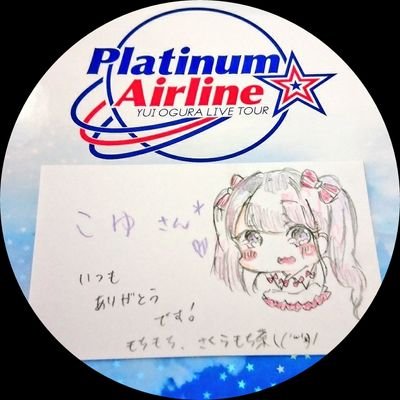 Platinum
Airline
YUI OGURA LIVE TOUR
こゆさん*♡
いつも
ありがとう
です!
もちもち、さくらもち